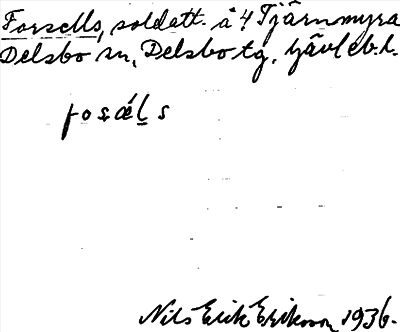 Forsells, soldatt. å 4 Tjärnmyra
Delsbo sn, Delsbo tg, Gävleb.l.
fosæ̀ḷs
Nils Erik Eriksson 1936.